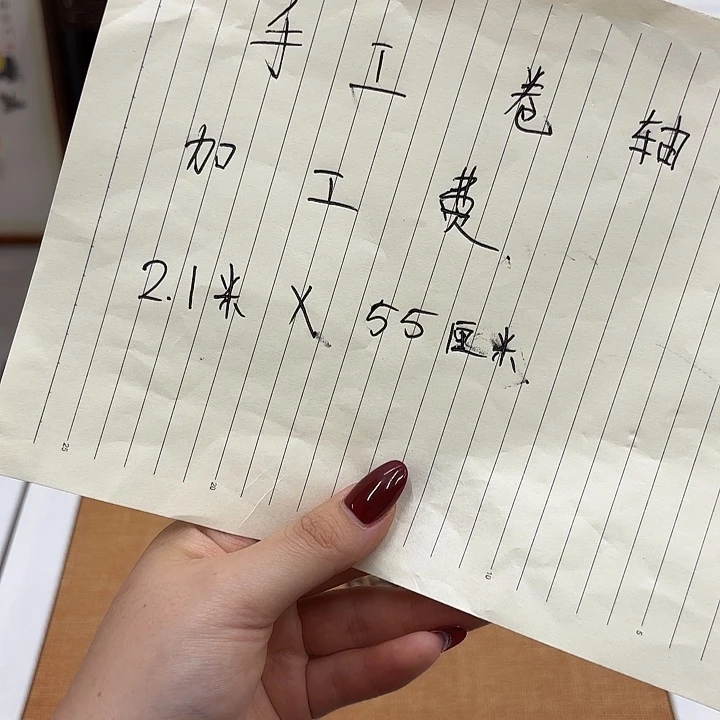 手工卷轴
加工费.
2.1米 X 55厘米.
25
20
10
5